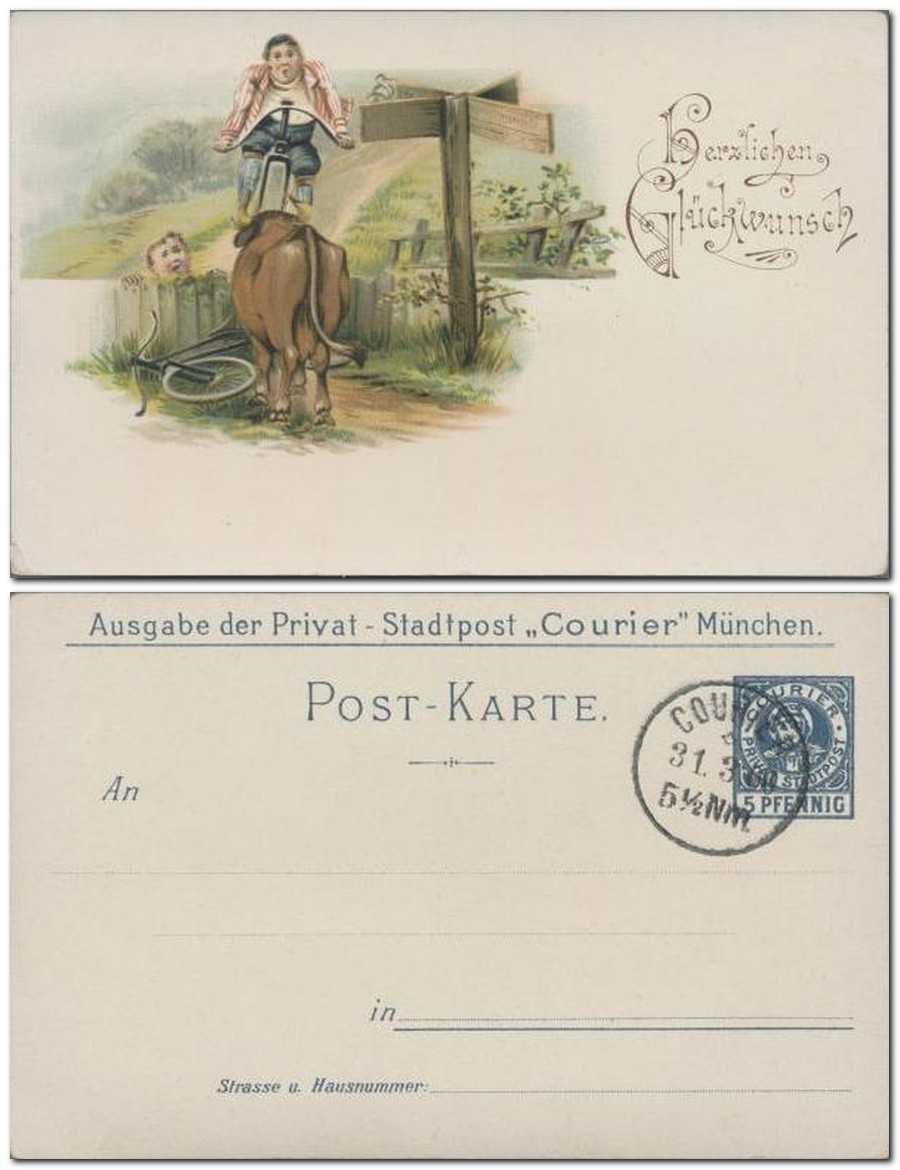 Herzlichen
Glückwunsch
Ausgabe der Privat-Stadtpost „Courier" München.
POST-KARTE.
COURIER
PRIVAT STADTPOST
5 PFENNIG
31. 3.
5½ Nm.
An
in
Strasse u. Hausnummer: